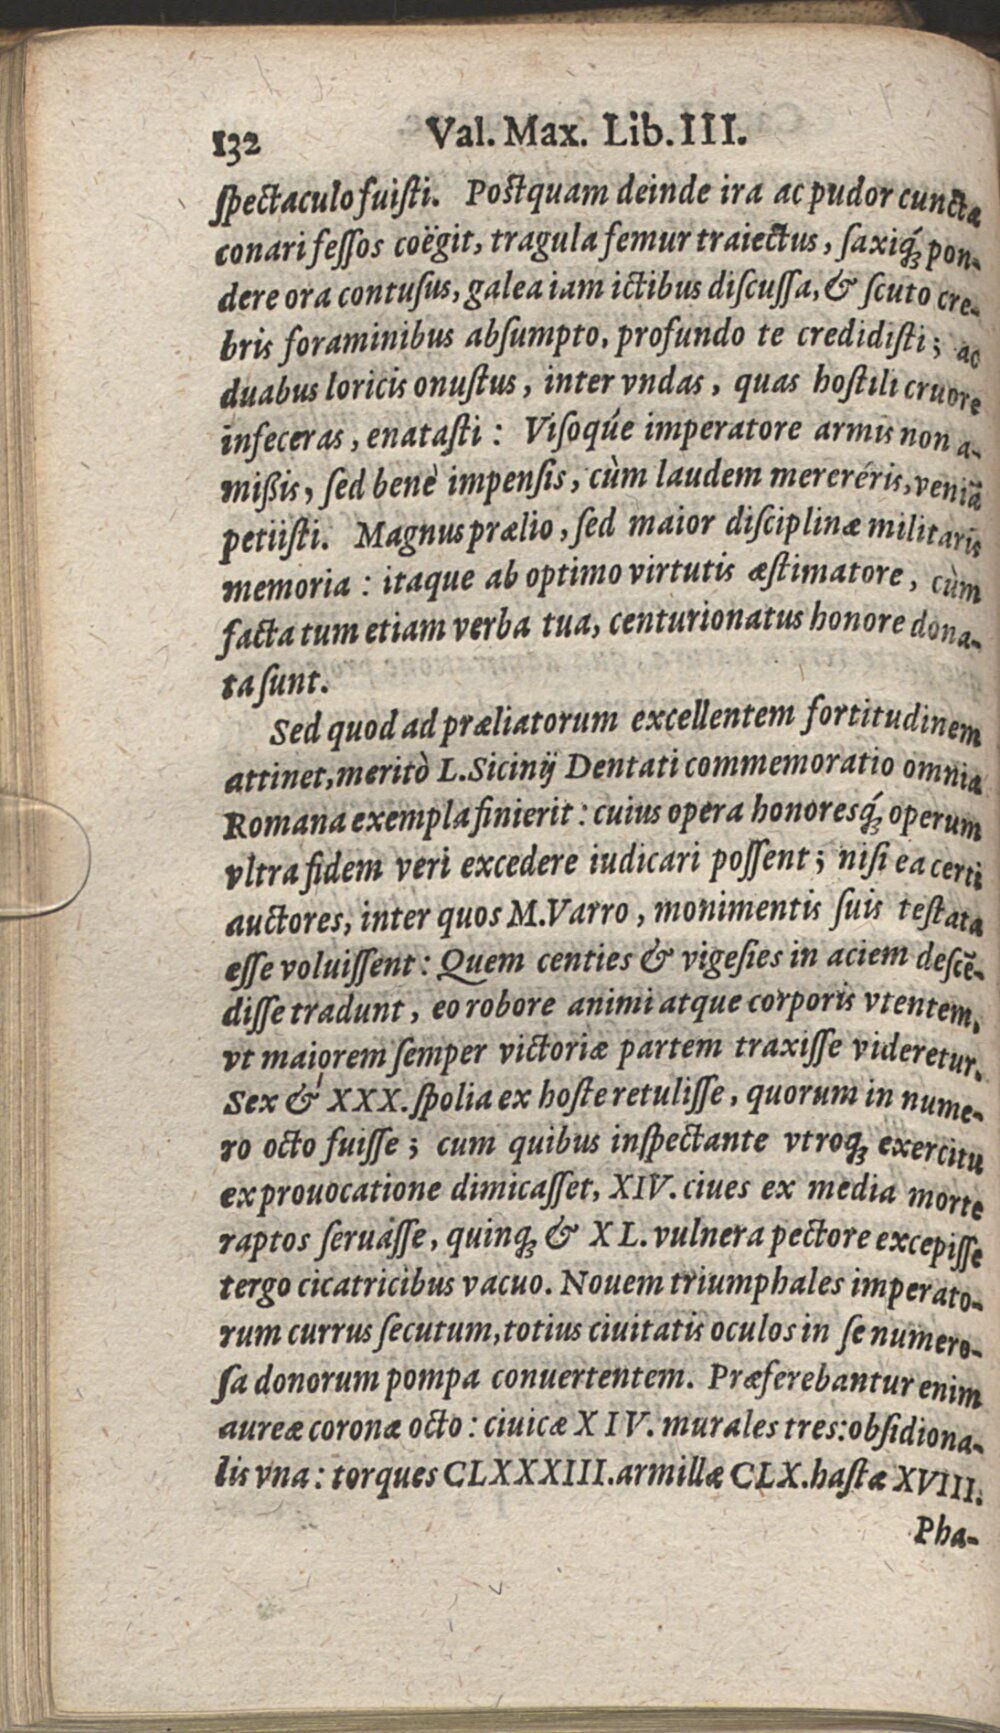 132 Val. Max. Lib. III.
ſpectaculo fuiſti. Poſtquam deinde ira ac pudor cuncta
conari feſſos coëgit, tragula femur traiectus, ſaxiq́ꝫ pon-
dere ora contuſus, galea iam ictibus diſcuſſa, & ſcuto cre-
bris foraminibus abſumpto, profundo te credidiſti; ac
duabus loricis onuſtus, inter vndas, quas hoſtili cruore
infeceras, enataſti: Viſoqúe imperatore armis non a-
mißis, ſed benè impenſis, cùm laudem mereréris, veniã
petiiſti. Magnus prælio, ſed maior diſciplinæ militaris
memoria: itaque ab optimo virtutis æſtimatore, cùm
facta tum etiam verba tua, centurionatus honore dona-
ta ſunt.
Sed quod ad præliatorum excellentem fortitudinem
attinet, meritò L. Sicinij Dentati commemoratio omnia
Romana exempla finierit: cuius opera honoresq́ꝫ operum
vltra fidem veri excedere iudicari poſſent; niſi ea certi
auctores, inter quos M. Varro, monimentis ſuis teſtata
eſſe voluiſſent: Quem centies & vigeſies in aciem deſcẽ-
diſſe tradunt, eo robore animi atque corporis vtentem,
vt maiorem ſemper victoriæ partem traxiſſe videretur.
Sex & XXX. ſpolia ex hoſte retuliſſe, quorum in nume-
ro octo fuiſſe; cum quibus inſpectante vtroqꝫ exercitu
ex prouocatione dimicaſſet, XIV. ciues ex media morte
raptos ſeruáſſe, quinqꝫ & XL. vulnera pectore excepiſſe
tergo cicatricibus vacuo. Nouem triumphales imperato-
rum currus ſecutum, totius ciuitatis oculos in ſe numero-
ſa donorum pompa conuertentem. Præferebantur enim
aureæ coronæ octo: ciuicæ XIV. murales tres: obſidiona-
lis vna: torques CLXXXIII. armillæ CLX. haſtæ XVIII.
Pha-